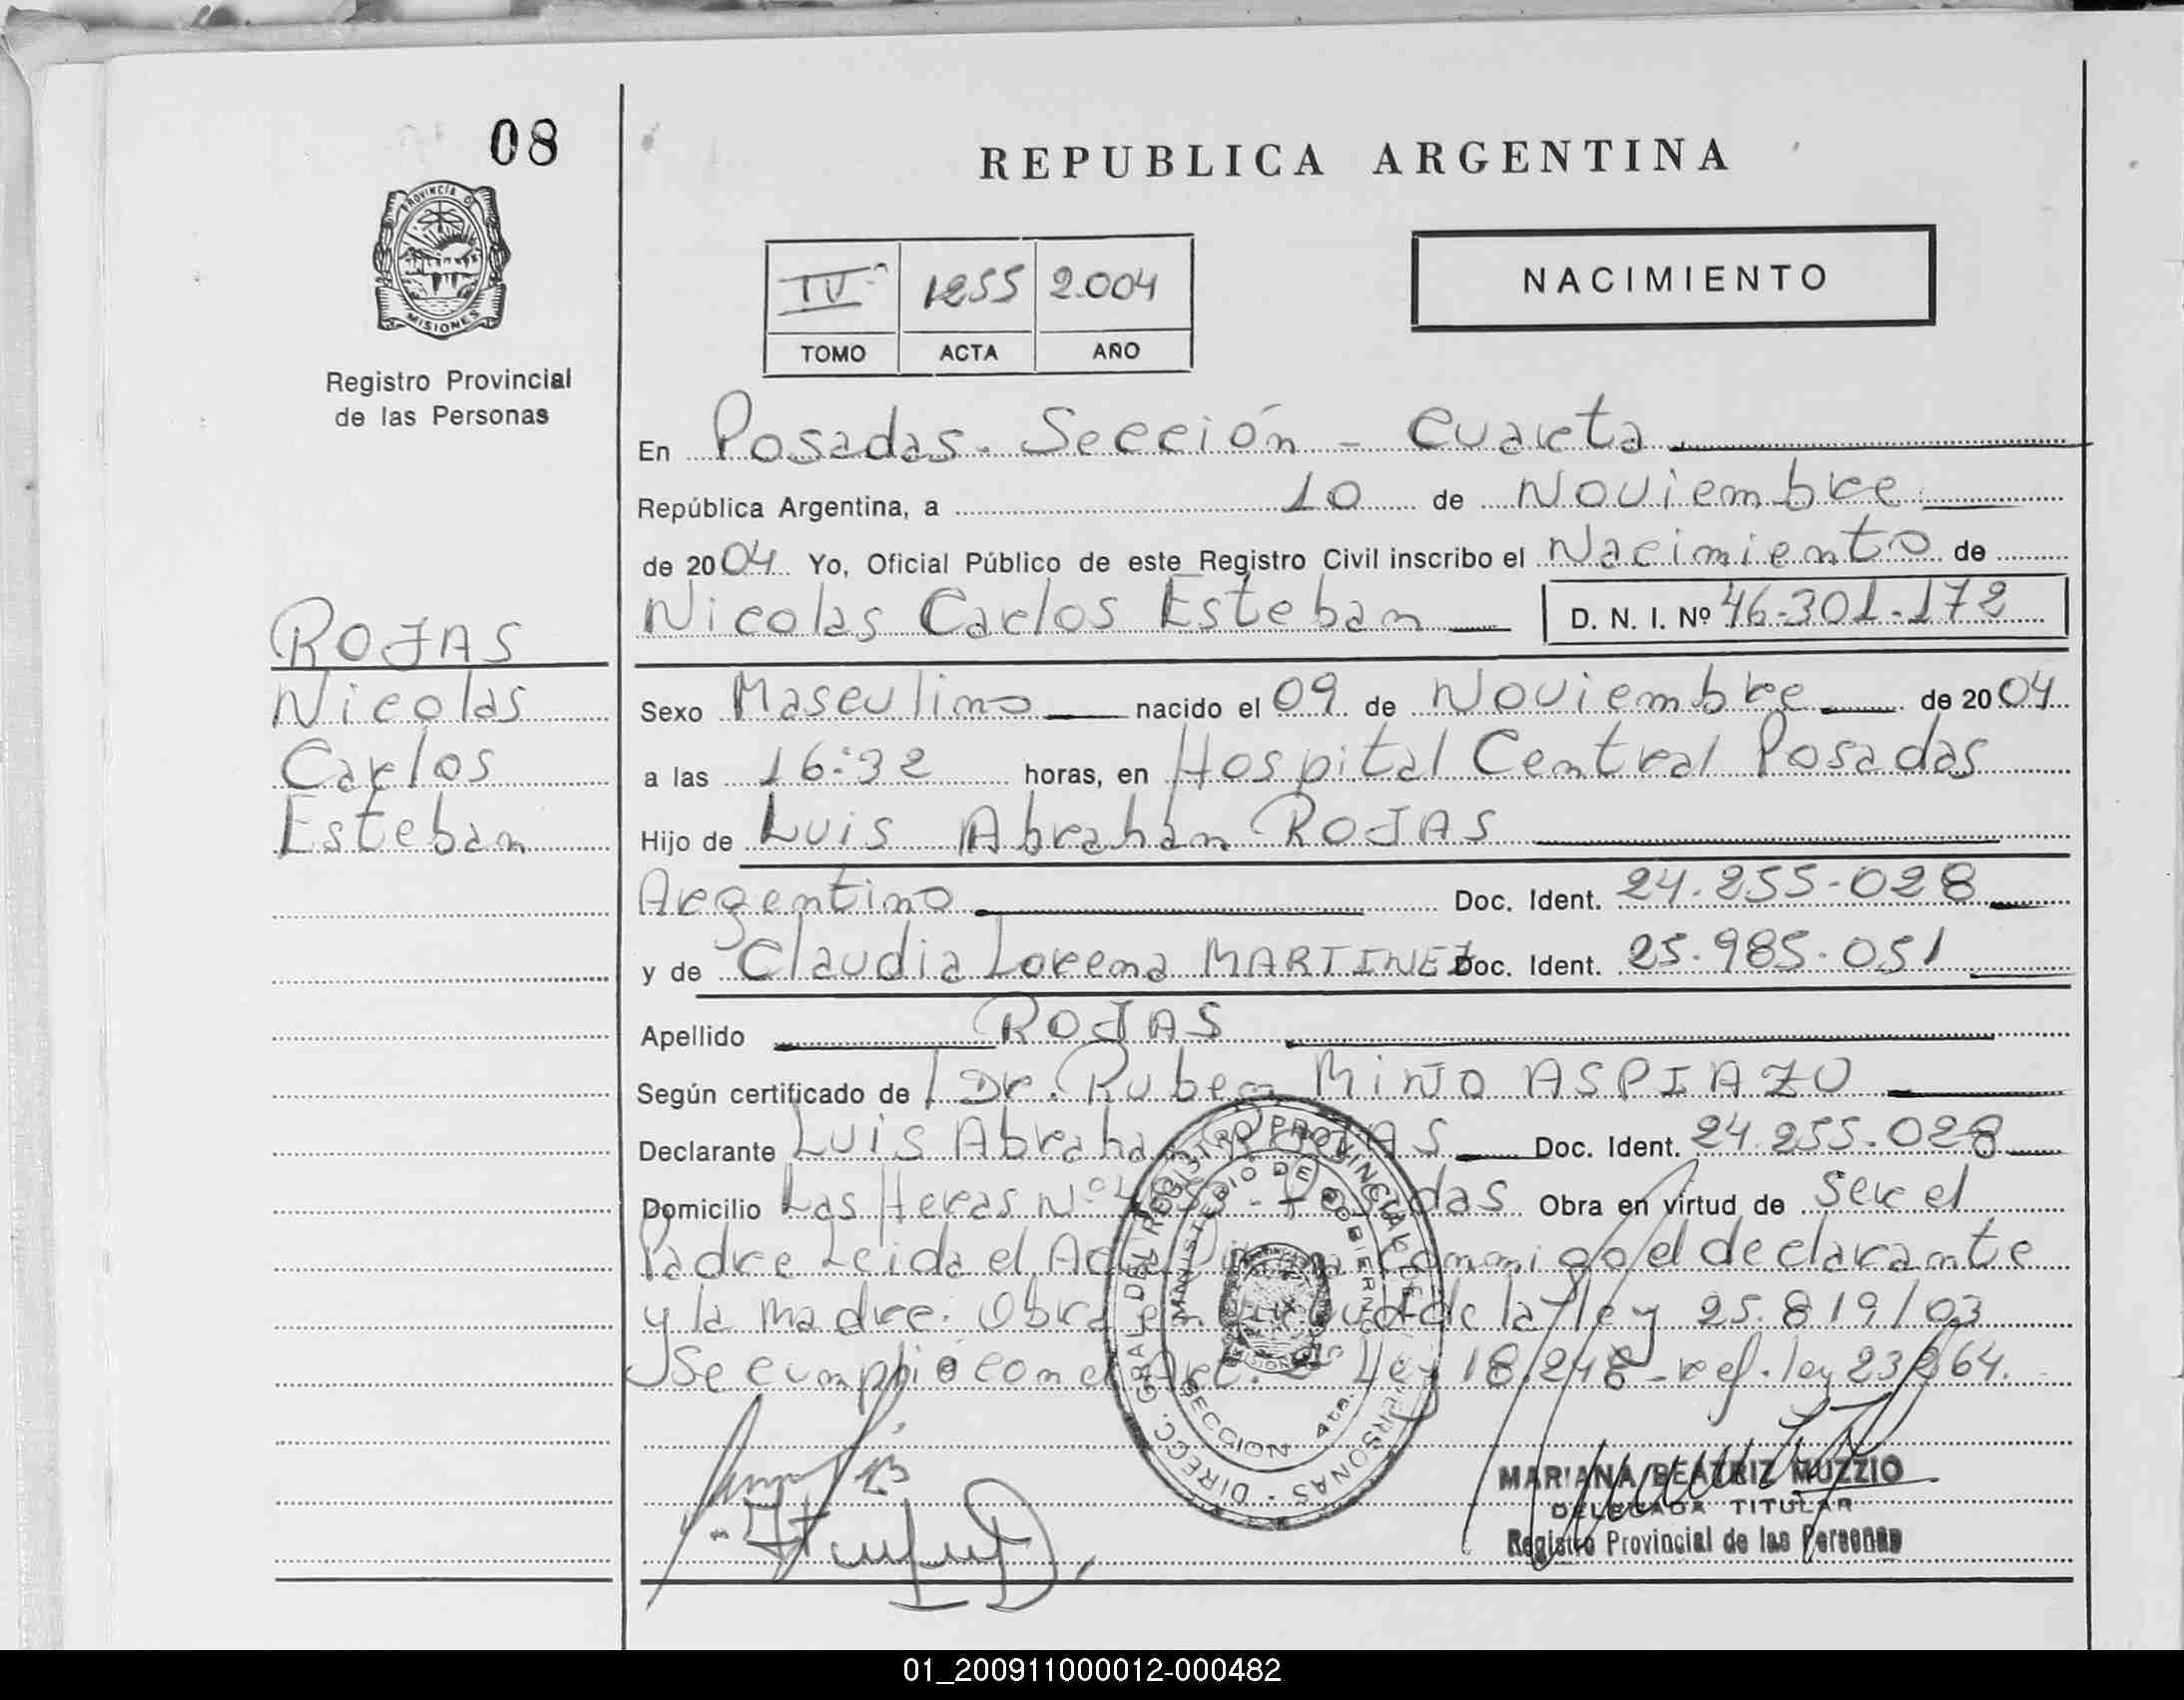 08
PROVINCIA D
MISIONES
Registro Provincial
de las Personas
ROJAS
Nicolas
Carlos
Esteban
REPUBLICA ARGENTINA
IV 1255 2.004
TOMO ACTA AÑO
NACIMIENTO
En Posadas. Sección - Cuarta
República Argentina, a 10 de Noviembre
de 2004 Yo, Oficial Público de este Registro Civil inscribo el Nacimiento de
Nicolas Carlos Esteban D. N. I. Nº 46-301-172
Sexo Masculino nacido el 09 de Noviembre de 2004
a las 16:32 horas, en Hospital Central Posadas
Hijo de Luis Abrahán ROJAS
Argentino Doc. Ident. 24.255.028
y de Claudia Lorena MARTINEZ Doc. Ident. 25.985.051
Apellido ROJAS
Según certificado de Dr. Ruben MIÑO ASPIAZU
Declarante Luis Abrahan ROJAS Doc. Ident. 24.255.028
Domicilio Las Heras Nº Posadas Obra en virtud de Ser el
Padre Leida el Acta Firma conmigo el declarante
y la madre. Obra en virtud de la ley 25.819/03
Se cumplio con el Art. Ley 18.248 - ref. ley 23264.
DIRECC. GRAL. DEL REGISTRO PROVINCIAL DE LAS PERSONAS
MINISTERIO DE GOBIERNO
SECCION 4ta.
MARIANA BEATRIZ MUZZIO
DELEGADA TITULAR
Registro Provincial de las Personas
01_200911000012-000482